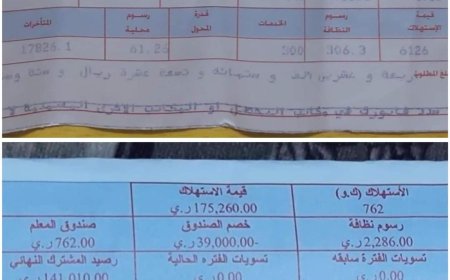 قيمة الإستهلاك رسوم النظافة الخدمات قدرة المحول رسوم محلية المتأخرات
6126 306.3 300 61.26 17826.1
و عشرين الف و ستمائة و تسعة عشرة ريال و ستة
الأستهلاك (ك.و) قيمة الاستهلاك
762 175,260.00 ر.ي
رسوم نظافة خصم الصندوق صندوق المعلم
2,286.00 ر.ي -39,000.00 ر.ي 762.00 ر.ي
تسويات الفترة سابقه تسويات الفتره الحالية رصيد المشترك النهائي
0.00 ر.ي 0.00 ر.ي 141,010.00 ر.ي